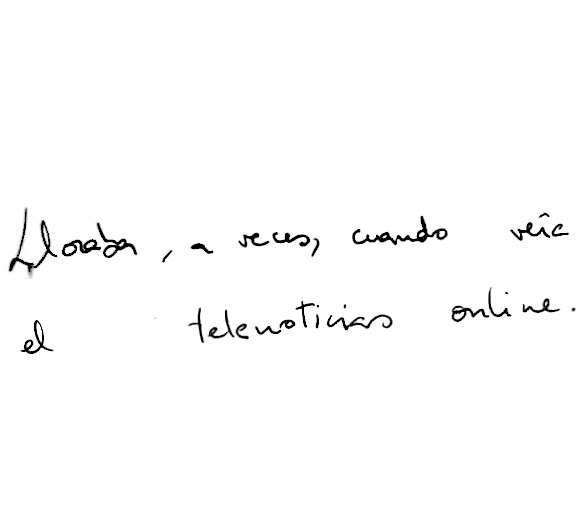 Lloraba, a veces, cuando veía
el telenoticias online.